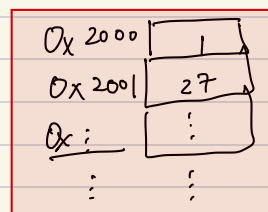 0x 2000 1
0x 2001 27
0x ⋮ ⋮
⋮ ⋮